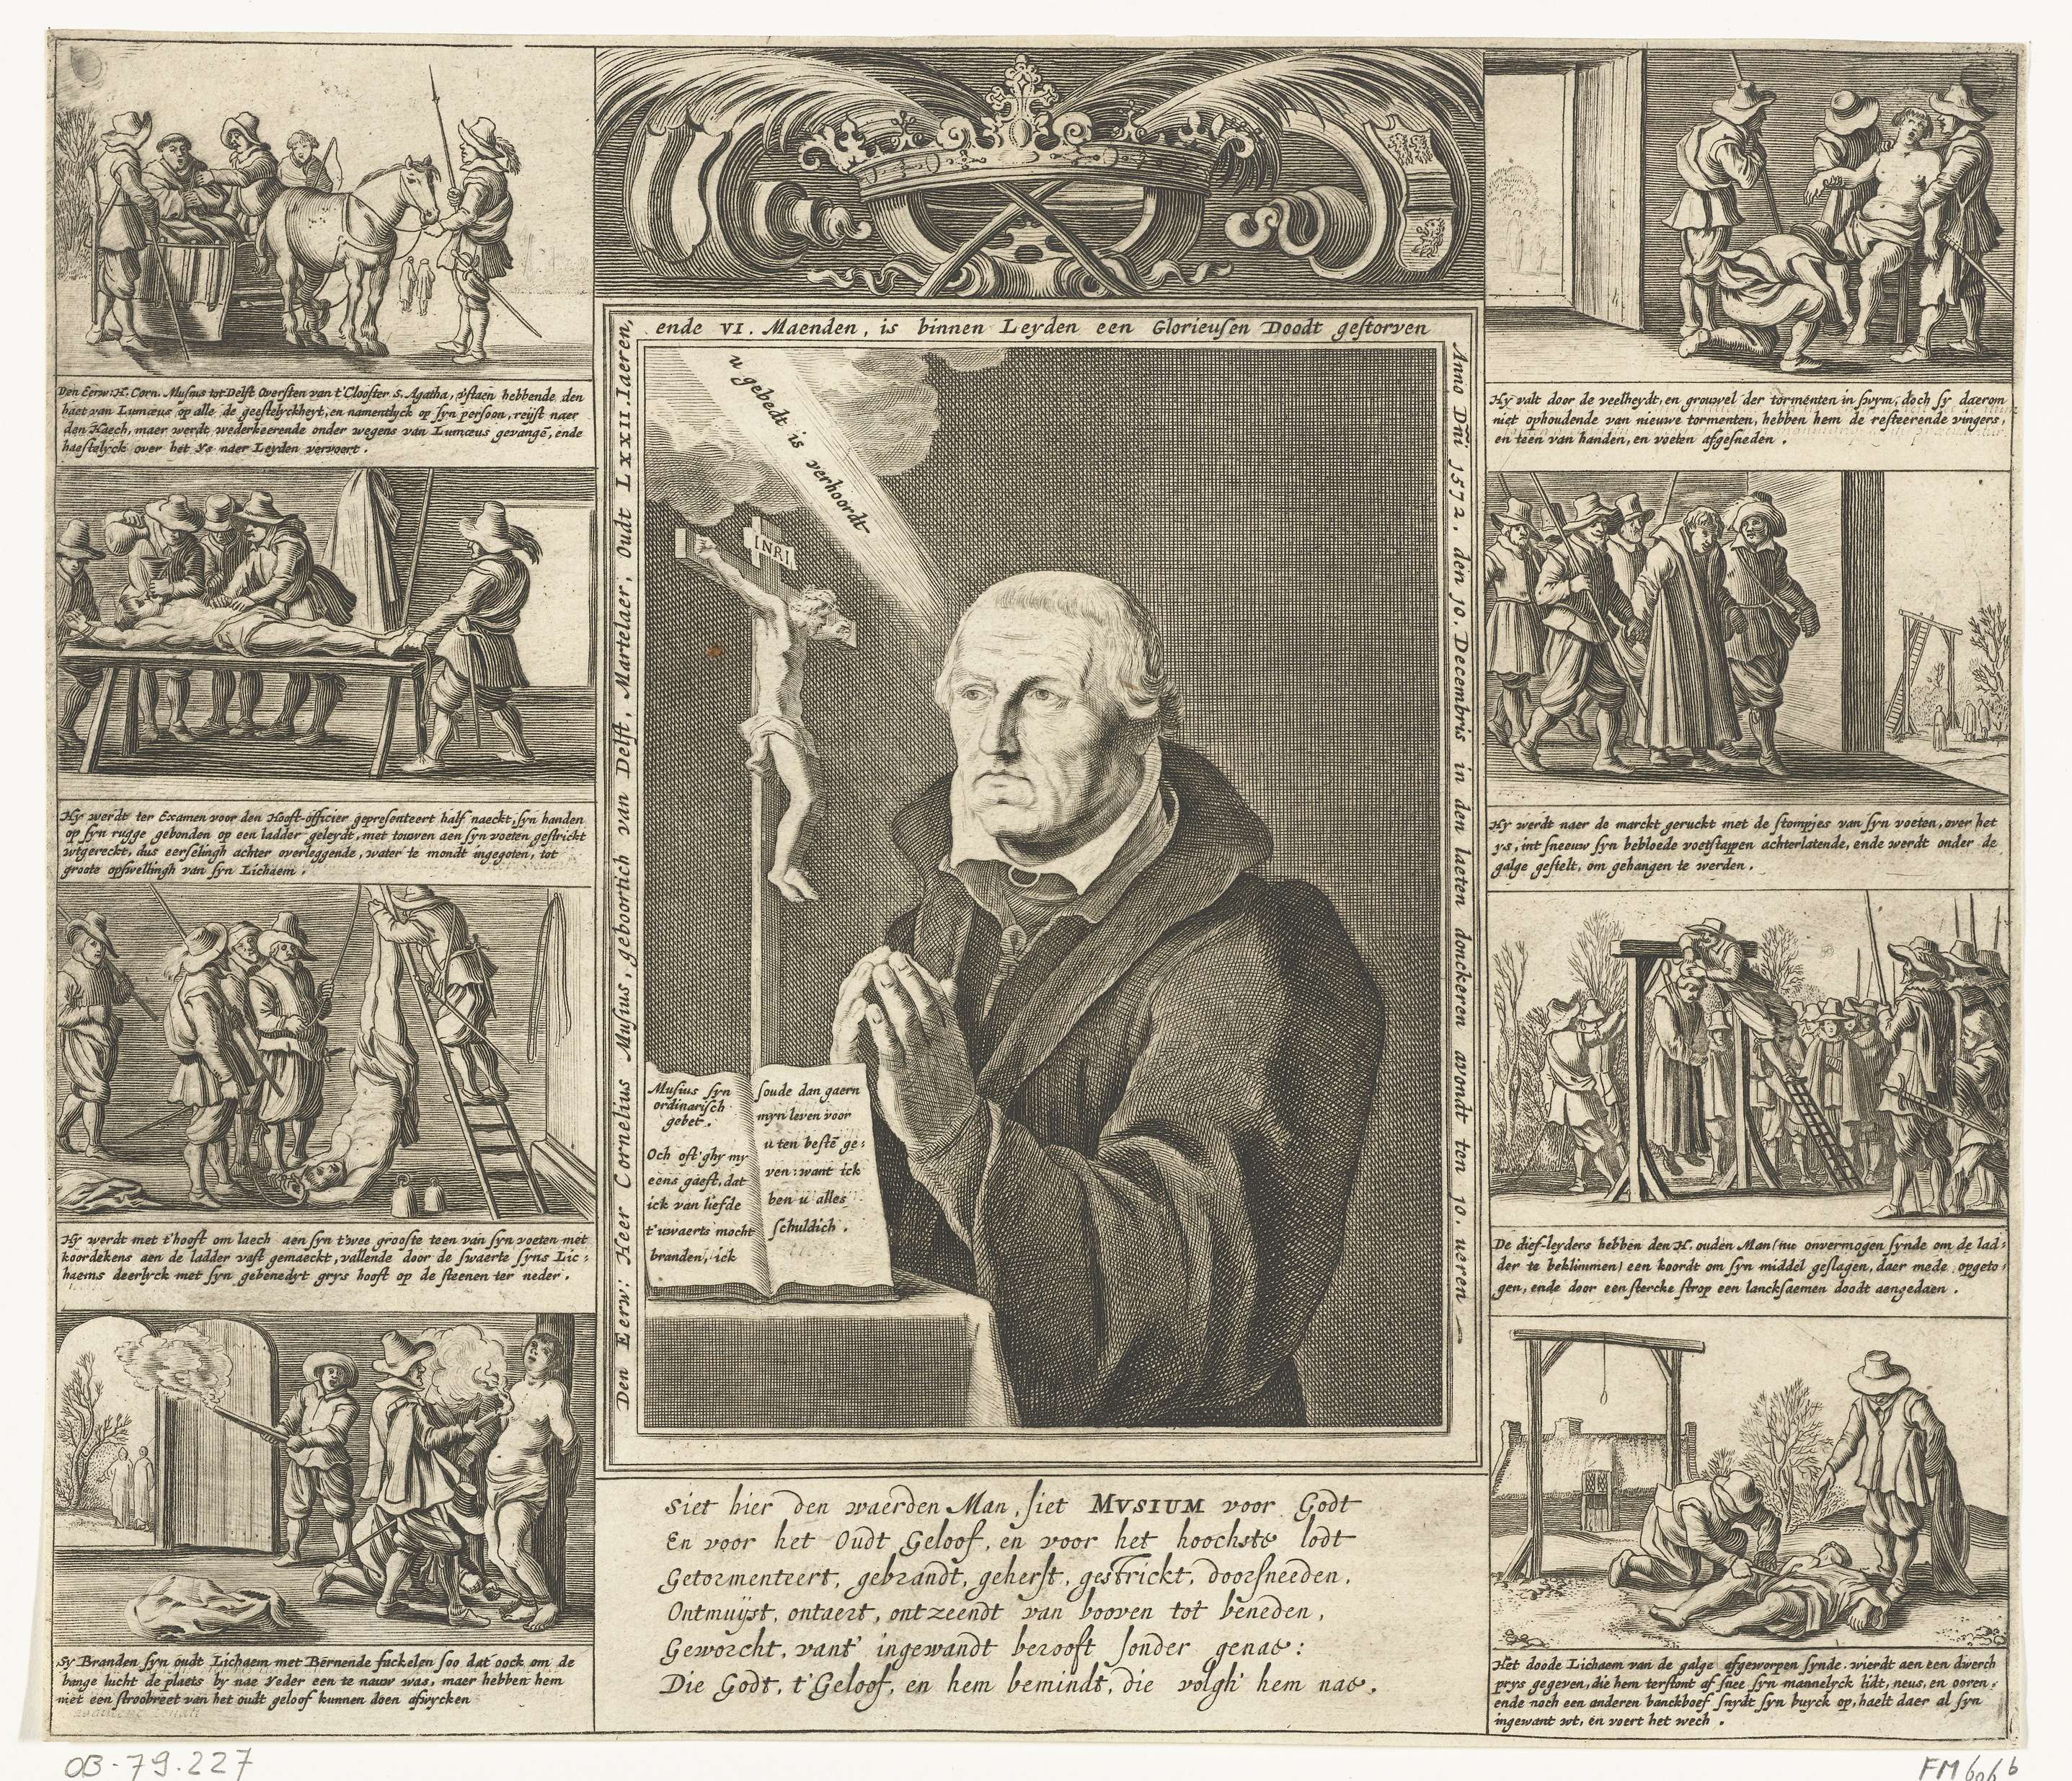 Den Eerw: Heer Cornelius Musius, geboortich van Delft, Martelaer, Oudt LXXIII. Iaeren,
ende VI. Maenden, is binnen Leyden een Glorieusen Doodt gestorven
Anno Dñi 1572. den 10. Decembris in den laeten donckeren avondt ten 10. ueren
u gebedt is verhoordt
INRI
Musius syn
ordinarisch
gebet.
Och oft' ghy my
eens gaeft, dat
ick van liefde
t'uwaerts mocht
branden, ick
soude dan gaern
myn leven voor
u ten bestē ge:
ven: want ick
ben u alles
schuldich.
Siet hier den waerden Man, siet MVSIUM voor Godt
En voor het Oudt Geloof, en voor het hoochste lodt
Getormenteert, gebrandt, geherst, gestrickt, doorsneeden,
Ontmuijst, ontaert, ontzeendt van booven tot beneden,
Geworcht, vant' ingewandt berooft sonder genae:
Die Godt, t'Geloof, en hem bemindt, die volgh' hem nae.
Den Eerw: H. Corn. Musius tot Delft Oversten van t'Clooster S. Agatha, v'staen hebbende den
haet van Lumæus op alle de geestelyckheyt, en namentlyck op syn persoon, reijst naer
den Haech, maer werdt wederkeerende onder wegens van Lumæus gevangē, ende
haestelyck over het Ys naer Leyden vervoert.
Hy werdt ter Examen voor den Hooft-officier gepresenteert half naeckt, syn handen
op syn rugge gebonden op een ladder geleydt, met touwen aen syn voeten gestrickt
wtgereckt, dus eerselingh achter overleggende, water te mondt ingegoten, tot
groote opswellingh van syn Lichaem.
Hy werdt met t'hooft om laech aen syn t'wee grooste teen van syn voeten met
koordekens aen de ladder vast gemaeckt, vallende door de swaerte syns Lic:
haems deerlyck met syn gebenedyt grys hooft op de steenen ter neder.
Sy Branden syn oudt Lichaem met Bernende fackelen soo dat oock om de
bange lucht de plaets by nae Yeder een te nauw was, maer hebben hem
niet een stroobreet van het oudt geloof kunnen doen afwycken
Hy valt door de veelheydt, en grouwel der tormenten in swym, doch sy daerom
niet ophoudende van nieuwe tormenten, hebben hem de resteerende vingers,
en teen van handen, en voeten afgesneden.
Hy werdt naer de marckt geruckt met de stompjes van syn voeten, over het
ys, int sneeuw syn bebloede voetstappen achterlatende, ende werdt onder de
galge gestelt, om gehangen te werden.
De dief-leyders hebben den H. ouden Man (nu onvermogen synde om de lad:
der te beklimmen) een koordt om syn middel geslagen, daer mede opgeto:
gen, ende door een stercke strop een lancksaemen doodt aengedaen.
Het doode Lichaem van de galge afgeworpen synde, wierdt aen een dwerch
prys gegeven, die hem terstont af snee syn mannelyck lidt, neus, en ooren,
ende noch een anderen banckboef snydt syn buyck op, haelt daer al syn
ingewant wt, en voert het wech.
OB-79.227
FM 606 b